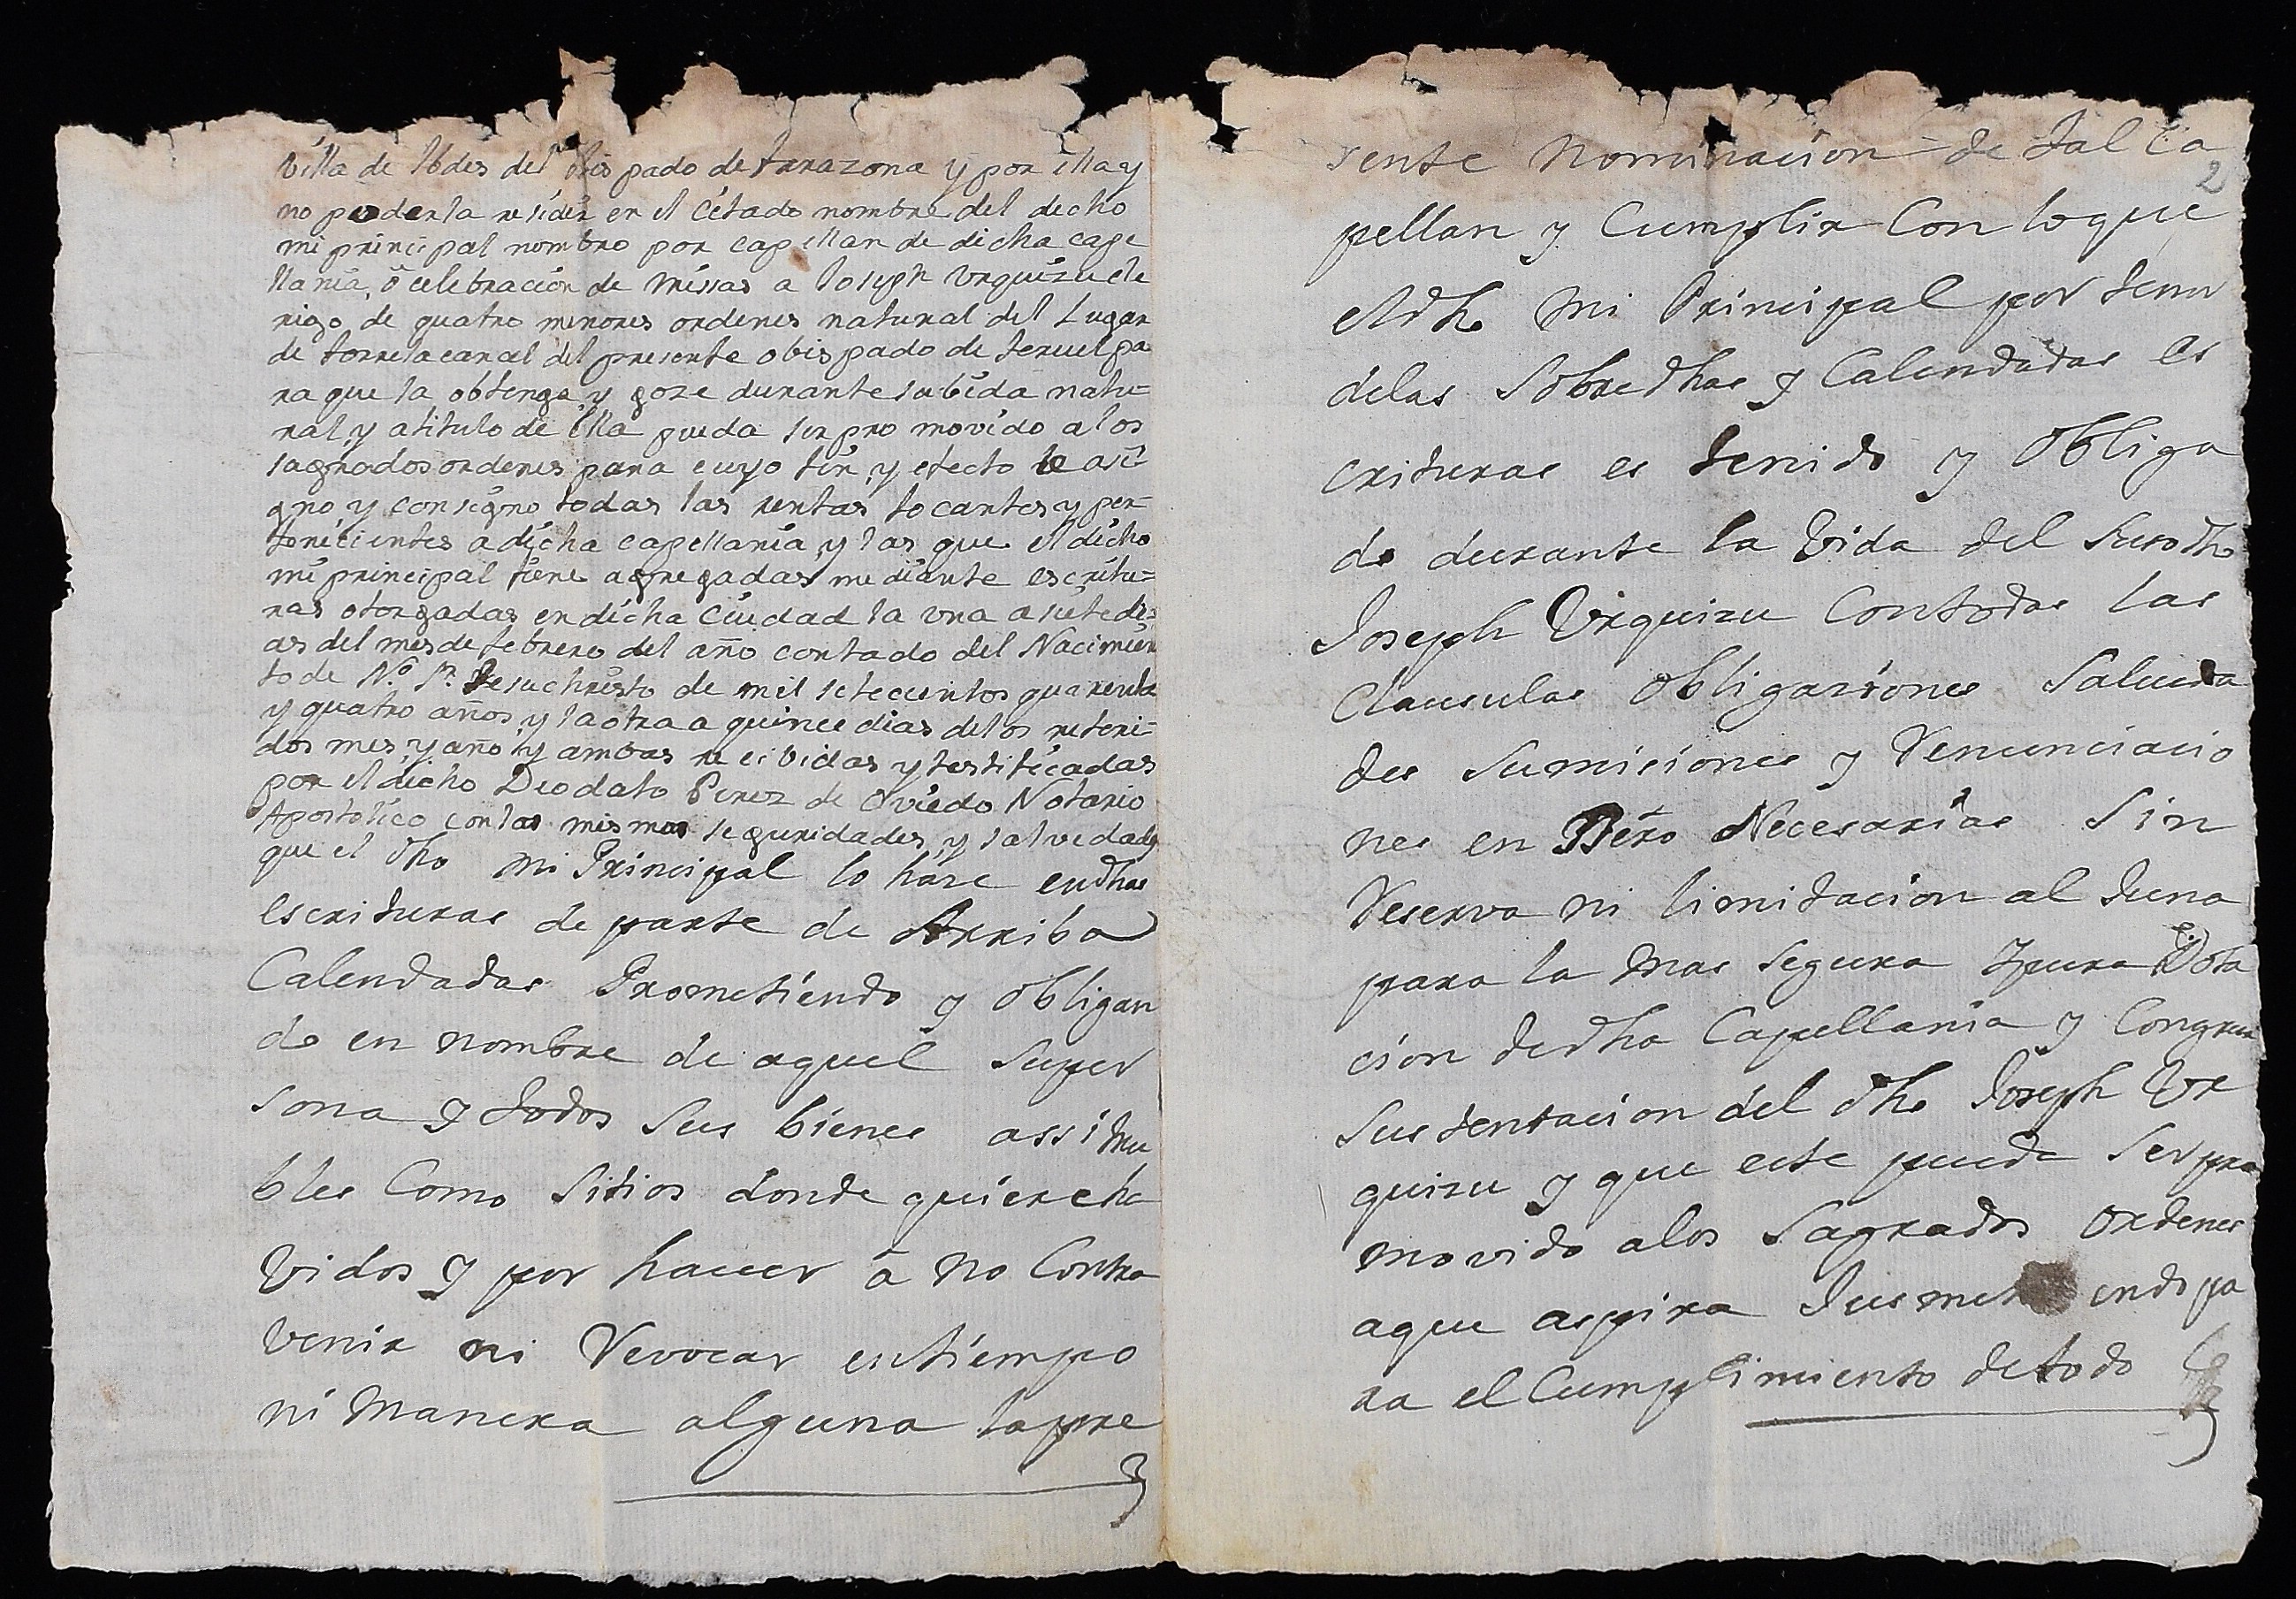 villa de Ibdes del obispado de tarazona y por ella y
no poderla residir en el citado nombre del dicho
mi principal nombro por capellan de dicha cape
llania, ô celebracion de missas a Joseph Urquizu cle
rigo de quatro menores ordenes natural del Lugar
de torre la carcel del presente obispado de teruel pa
ra que la obtenga y goze durante su bida natu=
ral y a titulo de ella pueda ser promovido a los
sagrados ordenes para cuyo fin, y efecto le asi
gno y consigno todas las rentas tocantes y per=
tenecientes a dicha capellania y las que el dicho
mi principal tiene agregadas mediante escritu=
ras otorgadas en dicha Ciudad la una a siete di=
as del mes de febrero del año contado del Nacimien
to de Nº Sr. Jesuchristo de mil setecientos quarenta
y quatro años y la otra a quince dias delos referi=
dos mes, y año y ambas recibidas y testificadas
por el dicho Deodato Perez de Oviedo Notario
Apostolico con las mismas seguridades, y salvedades
que el dho mi Principal lo haze en dhas
escrituras de parte de Arriba
Calendadas Prometiendo y obligan
do en nombre de aquel su per
sona y todos sus bienes assi mu
bles Como Sitios donde quiere ha
vidos y por haver â no Contra
venir ni Revocar en tiempo
ni manera alguna la pre
2
sente nominacion de tal Ca
pellan y Cumplir Con loque
el dho mi Principal por tenor
delas Sobredhas y Calendadas es
crituras es tenido y obliga
do durante la Vida del Susodho
Joseph Urquizu Contodas las
Clausulas obligaziones Salveda
des Sumisiones y Renunciacio
nes en Dro Necesarias Sin
Reserva ni limitacion al Juna
para la mas segura y pura Dota
cion dedha Capellania y Congrua
Sustentacion del dho Joseph Ur
quizu y que este pueda Ser pro
movido alos Sagrados ordenes
aque aspira endo pa
ra el Cumplimiento detodo